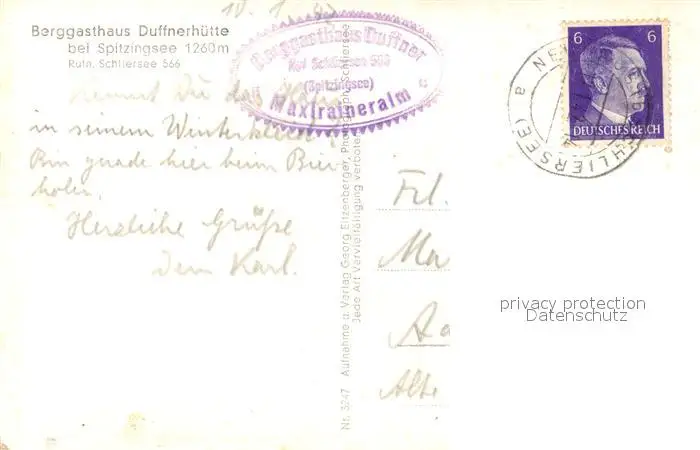 Berggasthaus Duffnerhütte
bei Spitzingsee 1260m
Rufn. Schliersee 566
Berggasthaus Duffner
Ruf Schliersee 566
(Spitzingsee)
Maxlraineralm
Kennst Du das
in seinem
Bin gerade hier beim Bier
holen.
Herzliche Grüße
Dein Karl.
Nr. 3247 Aufnahme u. Verlag Georg Eitzenberger, Photograph, Schliersee
Jede Art Vervielfältigung verboten
Frl.
Ma
Aa
Alte
6 6
DEUTSCHES REICH
(SCHLIERSEE) a
privacy protection
Datenschutz